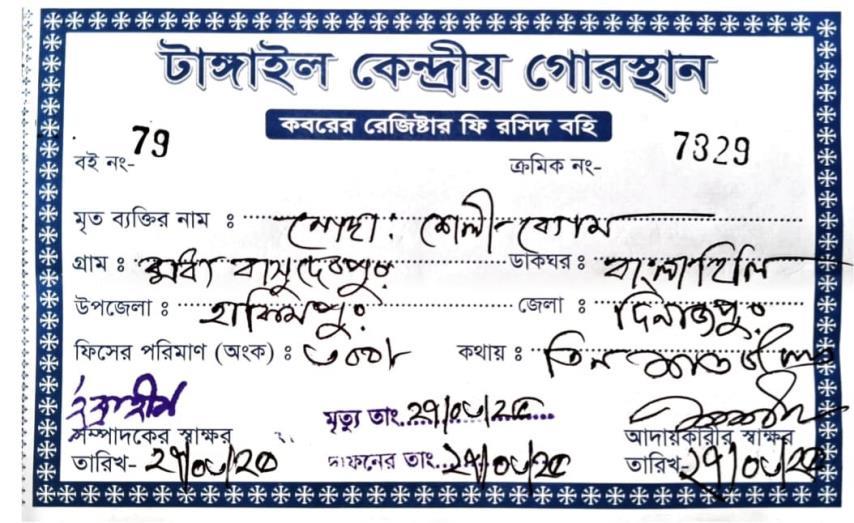 টাঙ্গাইল কেন্দ্রীয় গোরস্থান
কবরের রেজিষ্টার ফি রসিদ বহি
বই নং- 79 ক্রমিক নং- 7329
মৃত ব্যক্তির নাম : মোছা: শেলী বেগম
গ্রাম : মধ্য বাসুদেবপুর ডাকঘর : বাংলাহিলি
উপজেলা : হাকিমপুর জেলা : দিনাজপুর
ফিসের পরিমাণ (অংক) : ৩০০/- কথায় : তিন শত টাকা
মৃত্যু তাং
সম্পাদকের স্বাক্ষর আদায়কারীর স্বাক্ষর
তারিখ- দাফনের তাং তারিখ-